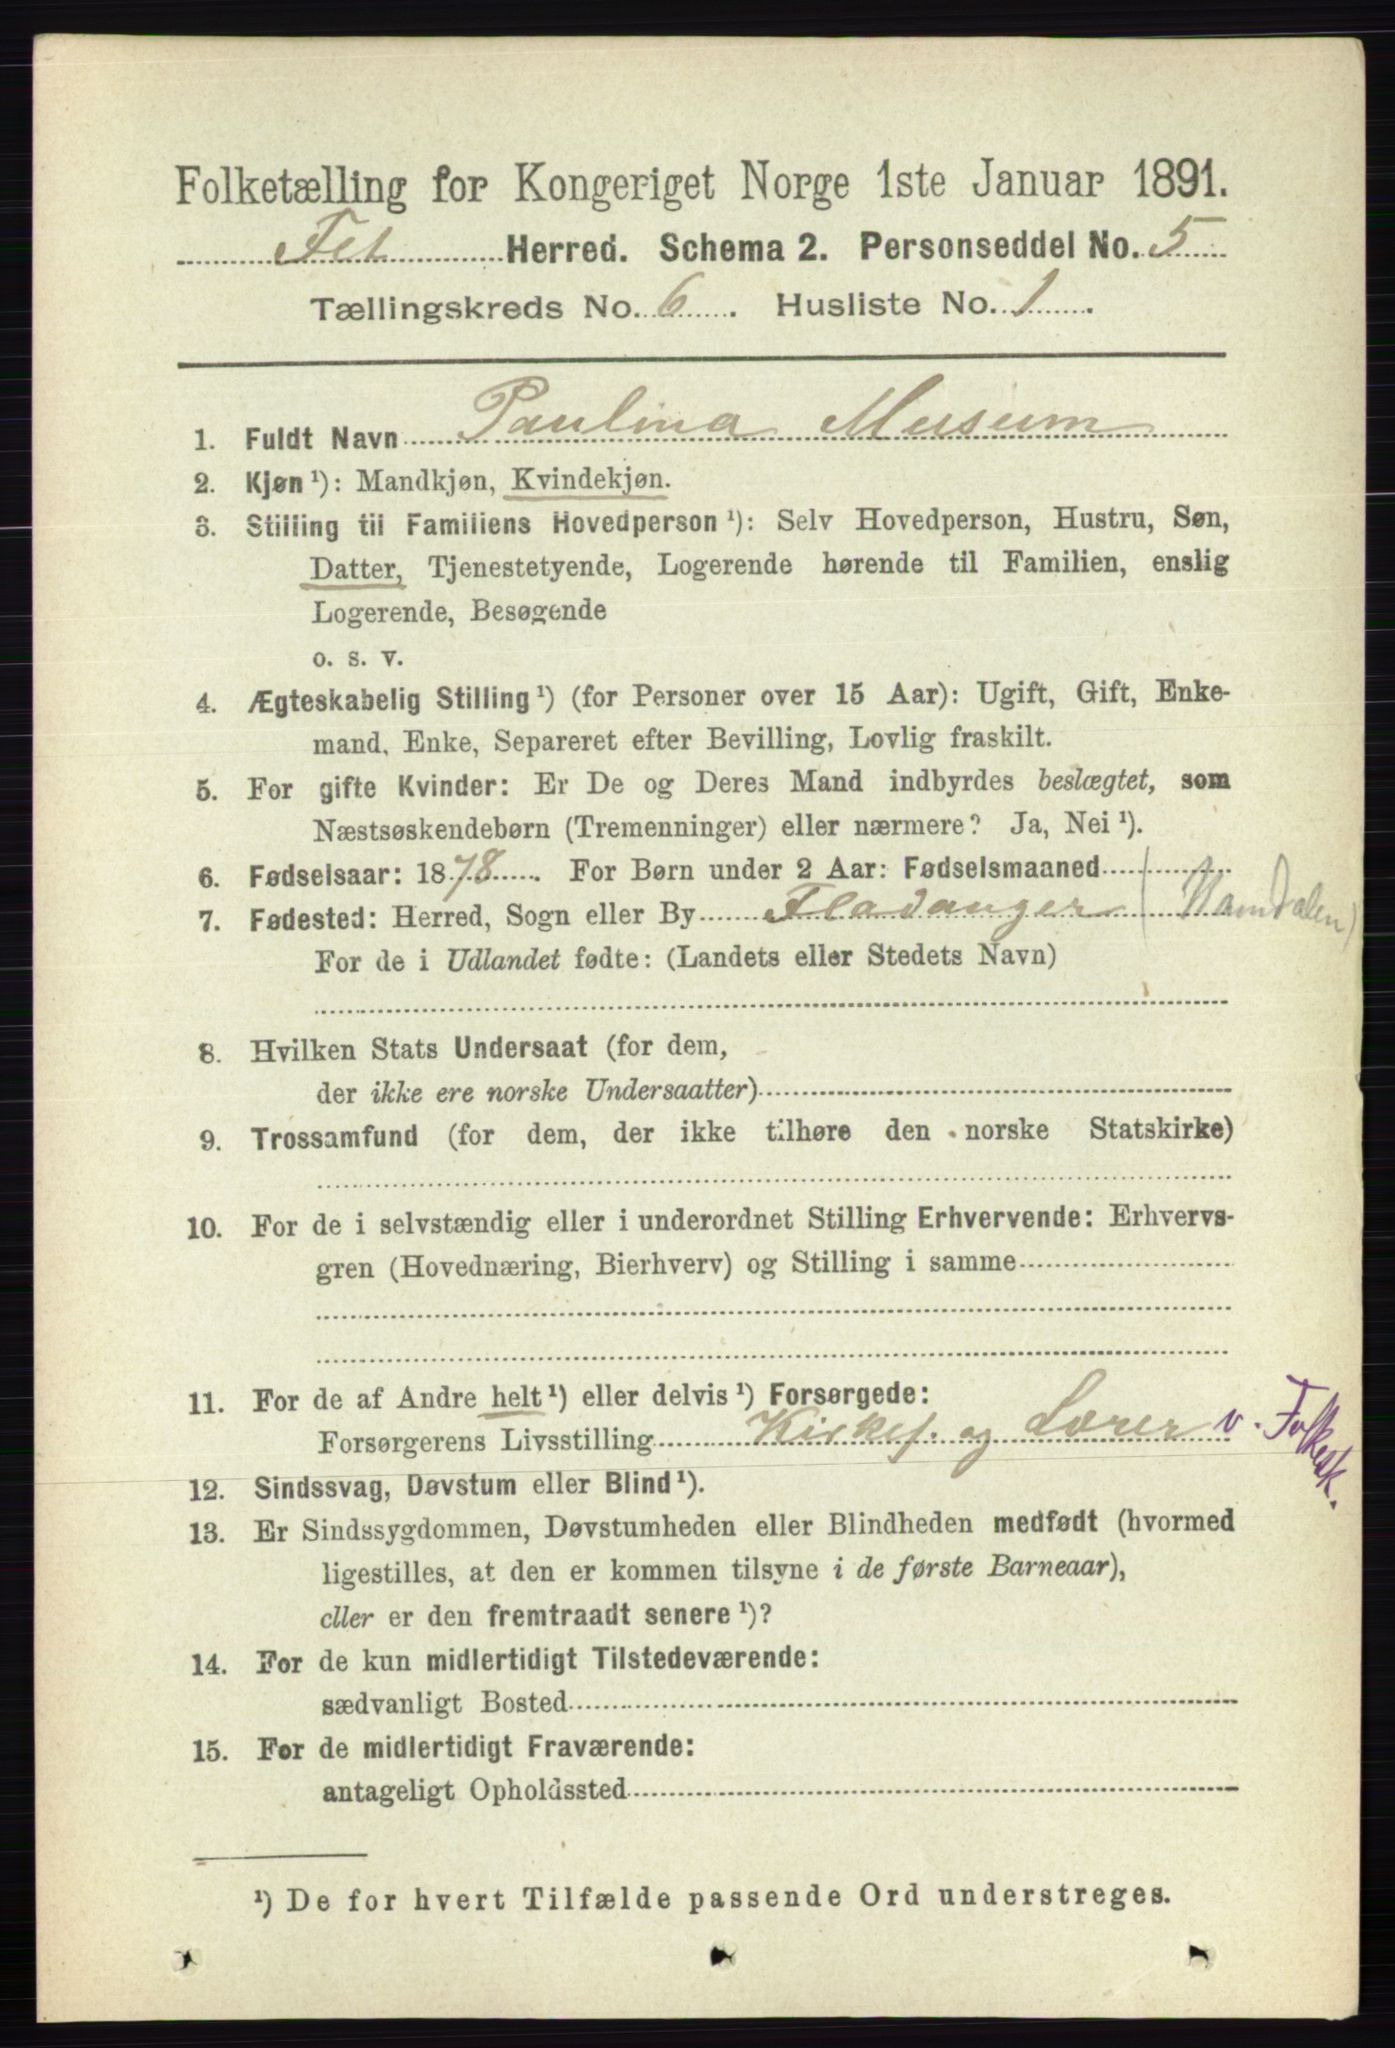 Folketælling for Kongeriget Norge 1ste Januar 1891.
Fet Herred. Schema 2. Personseddel No. 5
Tællingskreds No. 6. Husliste No. 1.
1. Fuldt Navn Paulina Museum
2. Kjøn ¹): Mandkjøn, Kvindekjøn.
3. Stilling til Familiens Hovedperson ¹): Selv Hovedperson, Hustru, Søn,
Datter, Tjenestetyende, Logerende hørende til Familien, enslig
Logerende, Besøgende
o. s. v.
4. Ægteskabelig Stilling ¹) (for Personer over 15 Aar): Ugift, Gift, Enke-
mand, Enke, Separeret efter Bevilling, Lovlig fraskilt.
5. For gifte Kvinder: Er De og Deres Mand indbyrdes beslægtet, som
Næstsøskendebørn (Tremenninger) eller nærmere? Ja, Nei ¹).
6. Fødselsaar: 1878. For Børn under 2 Aar: Fødselsmaaned
7. Fødested: Herred, Sogn eller By Fladanger (Namdalen)
For de i Udlandet fødte: (Landets eller Stedets Navn)
8. Hvilken Stats Undersaat (for dem,
der ikke ere norske Undersaatter)
9. Trossamfund (for dem, der ikke tilhøre den norske Statskirke)
10. For de i selvstændig eller i underordnet Stilling Erhvervende: Erhvervs-
gren (Hovednæring, Bierhverv) og Stilling i samme
11. For de af Andre helt ¹) eller delvis ¹) Forsørgede:
Forsørgerens Livsstilling Kirkes. og Lærer v. Folkesk.
12. Sindssvag, Døvstum eller Blind ¹).
13. Er Sindssygdommen, Døvstumheden eller Blindheden medfødt (hvormed
ligestilles, at den er kommen tilsyne i de første Barneaar),
eller er den fremtraadt senere ¹)?
14. For de kun midlertidigt Tilstedeværende:
sædvanligt Bosted
15. For de midlertidigt Fraværende:
antageligt Opholdssted
¹) De for hvert Tilfælde passende Ord understreges.